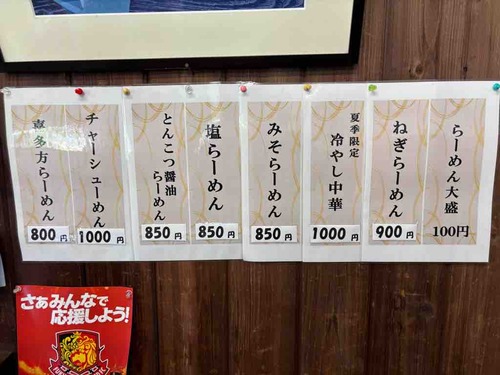 らーめん大盛
100円
ねぎらーめん
900円
夏季限定
冷やし中華
1000円
みそらーめん
850円
塩らーめん
850円
とんこつ醤油
らーめん
850円
チャーシューめん
1000円
喜多方らーめん
800円
さぁみんなで
応援しよう!